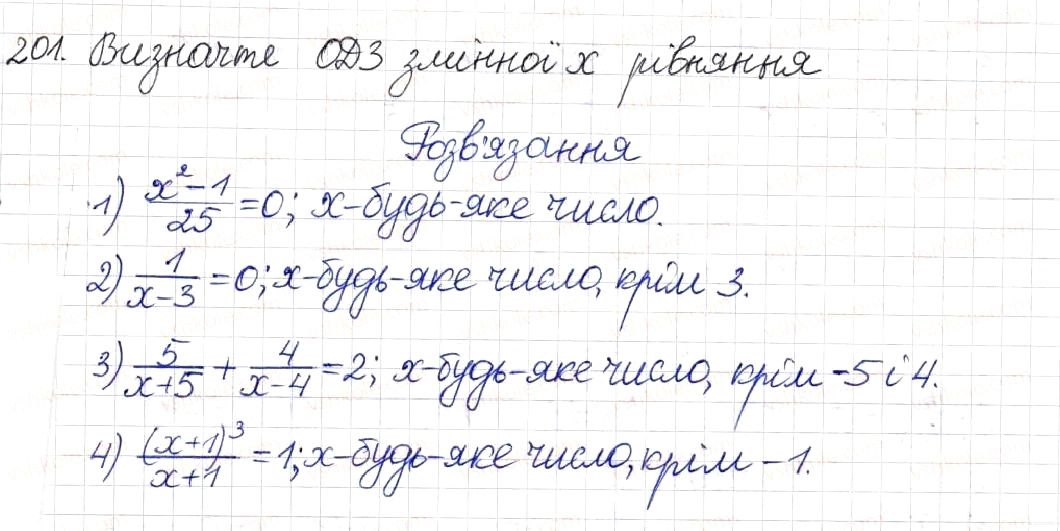 201. Визначте ОДЗ змінної x рівняння
Розв'язання
1) (x²-1)/25 = 0; x-будь-яке число.
2) 1/(x-3) = 0; x-будь-яке число, крім 3.
3) 5/(x+5) + 4/(x-4) = 2; x-будь-яке число, крім -5 і 4.
4) (x+1)³/(x+1) = 1; x-будь-яке число, крім -1.